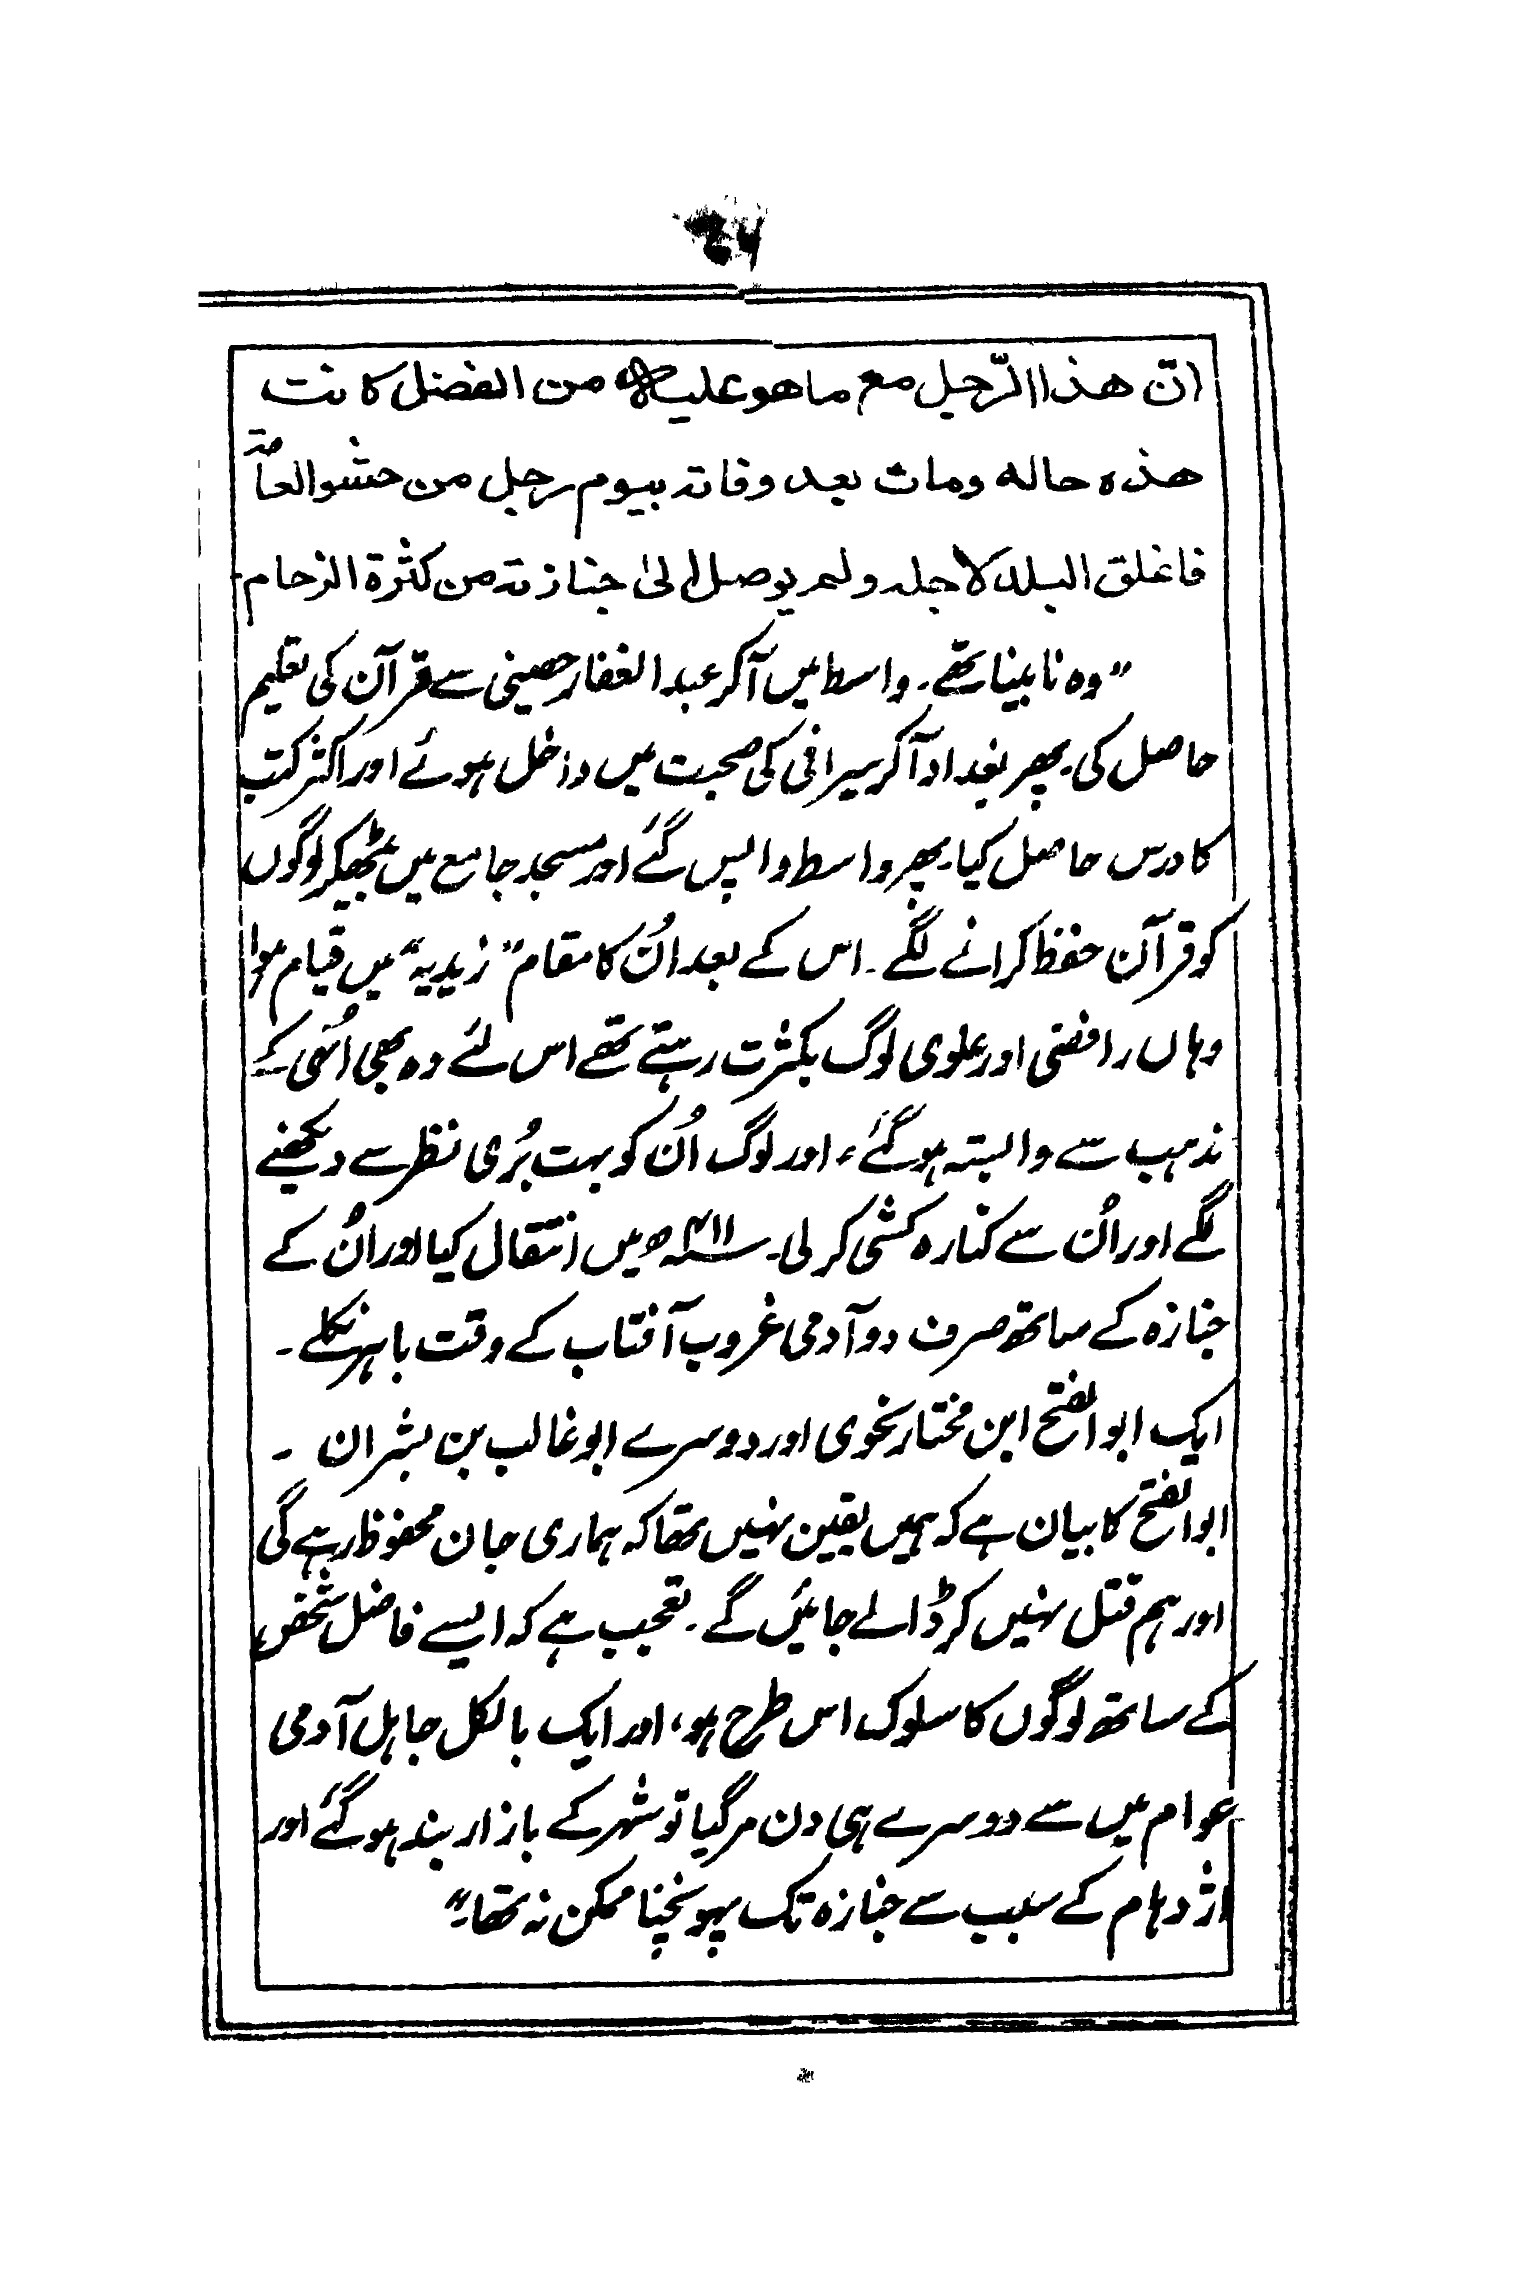 انّ هذا الرّجل مع ما هو عليه من الفضل كانت
هذه حاله ومات بعد وفاته بيوم رجل من حشو العامّة
فاغلق البلد لاجله ولم يوصل الىٰ جنازته من كثرة الزحام
”وہ نابینا تھے۔ واسط میں آکر عبد الغفار حصینی سے قرآن کی تعلیم
حاصل کی۔ پھر بغداد آکر سیرافی کی صحبت میں داخل ہوئے اور اکثر کتب
کا درس حاصل کیا۔ پھر واسط واپس گئے اور مسجد جامع میں بیٹھکر لوگوں
کو قرآن حفظ کرانے لگے۔ اس کے بعد اُن کا مقام ”زیدیہ“ میں قیام ہوا
وہاں رافضی اور علوی لوگ بکثرت رہتے تھے اس لئے وہ بھی اُسی کے
مذہب سے وابستہ ہوگئے، اور لوگ اُن کو بہت بُری نظر سے دیکھنے
لگے اور اُن سے کنارہ کشی کر لی۔ ۴۱۱ھ میں انتقال کیا اور اُن کے
جنازہ کے ساتھ صرف دو آدمی غروب آفتاب کے وقت باہر نکلے۔
ایک ابو الفتح ابن مختار نحوی اور دوسرے ابو غالب بن بشران ۔
ابو الفتح کا بیان ہے کہ ہمیں یقین نہیں تھا کہ ہماری جان محفوظ رہے گی
اور ہم قتل نہیں کر ڈالے جائیں گے۔ تعجب ہے کہ ایسے فاضل شخص
کے ساتھ لوگوں کا سلوک اس طرح ہو، اور ایک بالکل جاہل آدمی
عوام میں سے دوسرے ہی دن مر گیا تو شہر کے بازار بند ہو گئے اور
اژدہام کے سبب سے جنازہ تک پہونچنا ممکن نہ تھا۔“